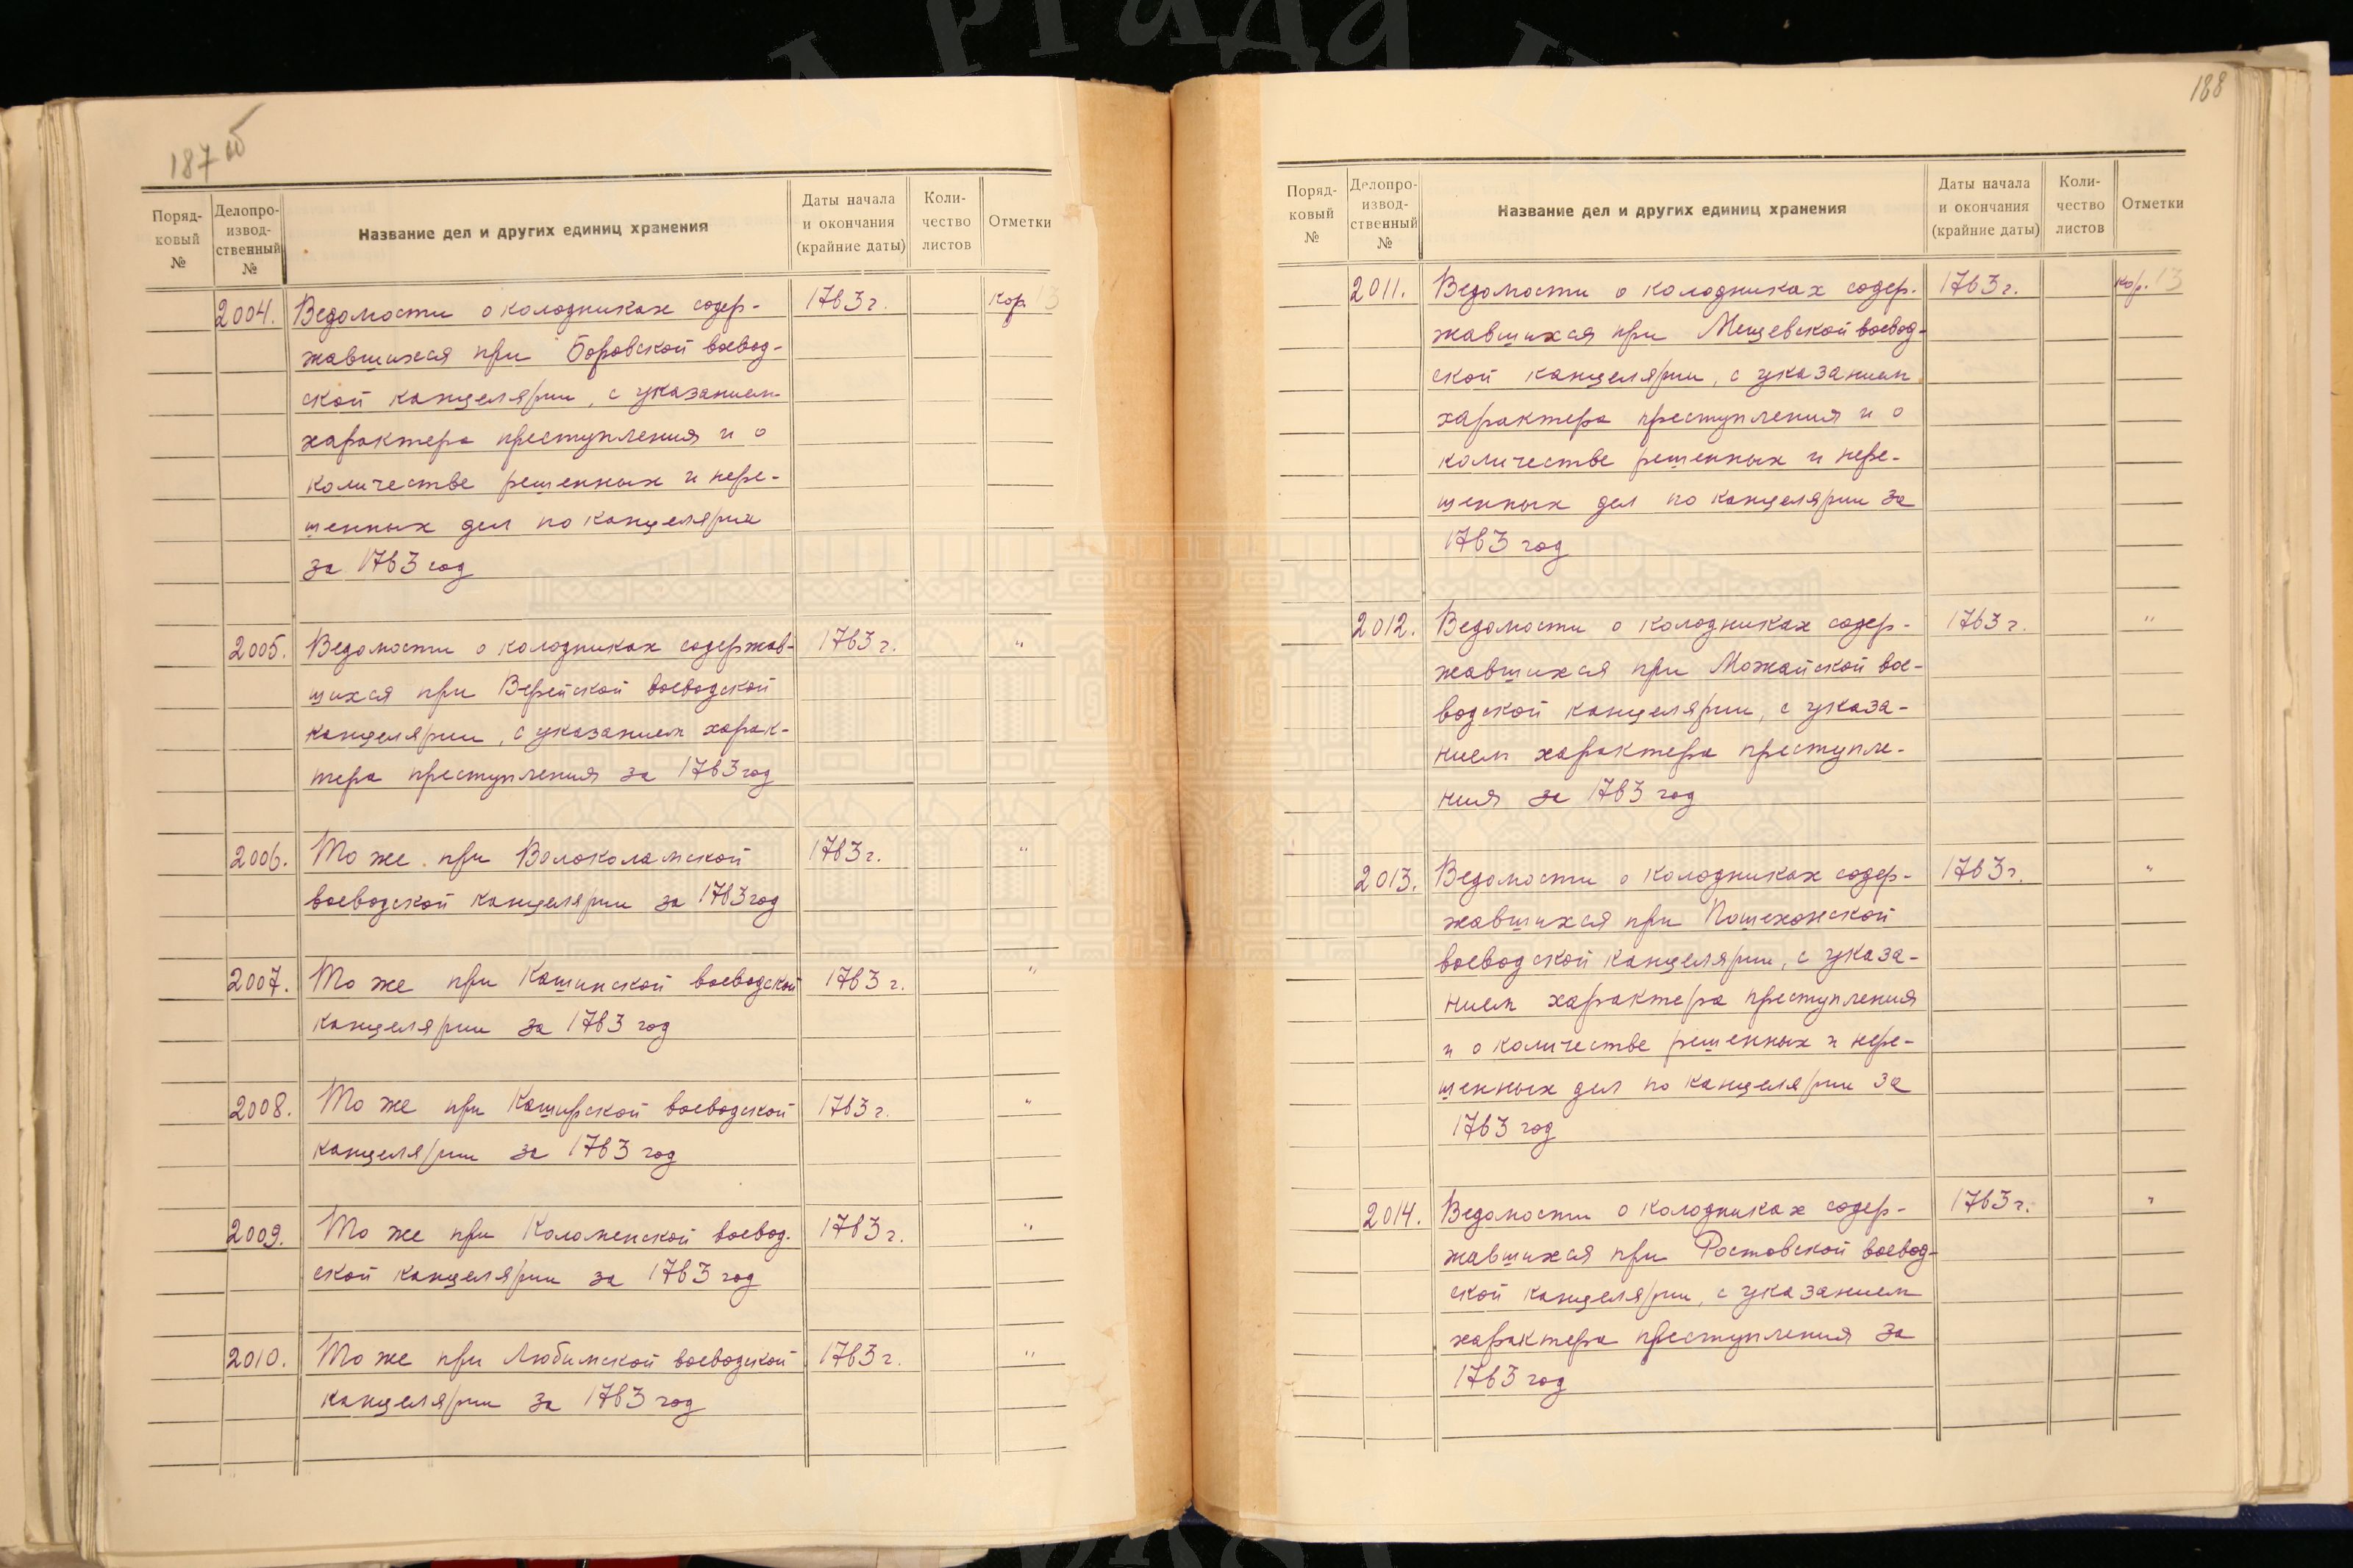 187 об
Поряд-
ковый
№
Делопро-
извод-
ственный
№
Название дел и других единиц хранения
Даты начала
и окончания
(крайние даты)
Коли-
чество
листов
Отметки
2004. Ведомости о колодниках содер- 1763 г. кор. 13
жавшихся при Боровской воевод-
ской канцелярии, с указанием
характера преступления и о
количестве решенных и нере-
шенных дел по канцелярии
за 1763 год
2005. Ведомости о колодниках содержав- 1763 г. "
шихся при Верейской воеводской
канцелярии, с указанием харак-
тера преступления за 1763 год
2006. То же при Волоколамской 1763 г. "
воеводской канцелярии за 1763 год
2007. То же при Кашинской воеводской 1763 г. "
канцелярии за 1763 год
2008. То же при Каширской воеводской 1763 г. "
канцелярии за 1763 год
2009. То же при Коломенской воевод- 1763 г. "
ской канцелярии за 1763 год
2010. То же при Любимской воеводской 1763 г. "
канцелярии за 1763 год
188
Поряд-
ковый
№
Делопро-
извод-
ственный
№
Название дел и других единиц хранения
Даты начала
и окончания
(крайние даты)
Коли-
чество
листов
Отметки
2011. Ведомости о колодниках содер- 1763 г. кор. 13
жавшихся при Мещевской воевод-
ской канцелярии, с указанием
характера преступления и о
количестве решенных и нере-
шенных дел по канцелярии за
1763 год
2012. Ведомости о колодниках содер- 1763 г. "
жавшихся при Можайской вое-
водской канцелярии, с указа-
нием характера преступле-
ния за 1763 год
2013. Ведомости о колодниках содер- 1763 г. "
жавшихся при Пошехонской
воеводской канцелярии, с указа-
нием характера преступления
и о количестве решенных и нере-
шенных дел по канцелярии за
1763 год
2014. Ведомости о колодниках содер- 1763 г. "
жавшихся при Ростовской воевод-
ской канцелярии, с указанием
характера преступления за
1763 год